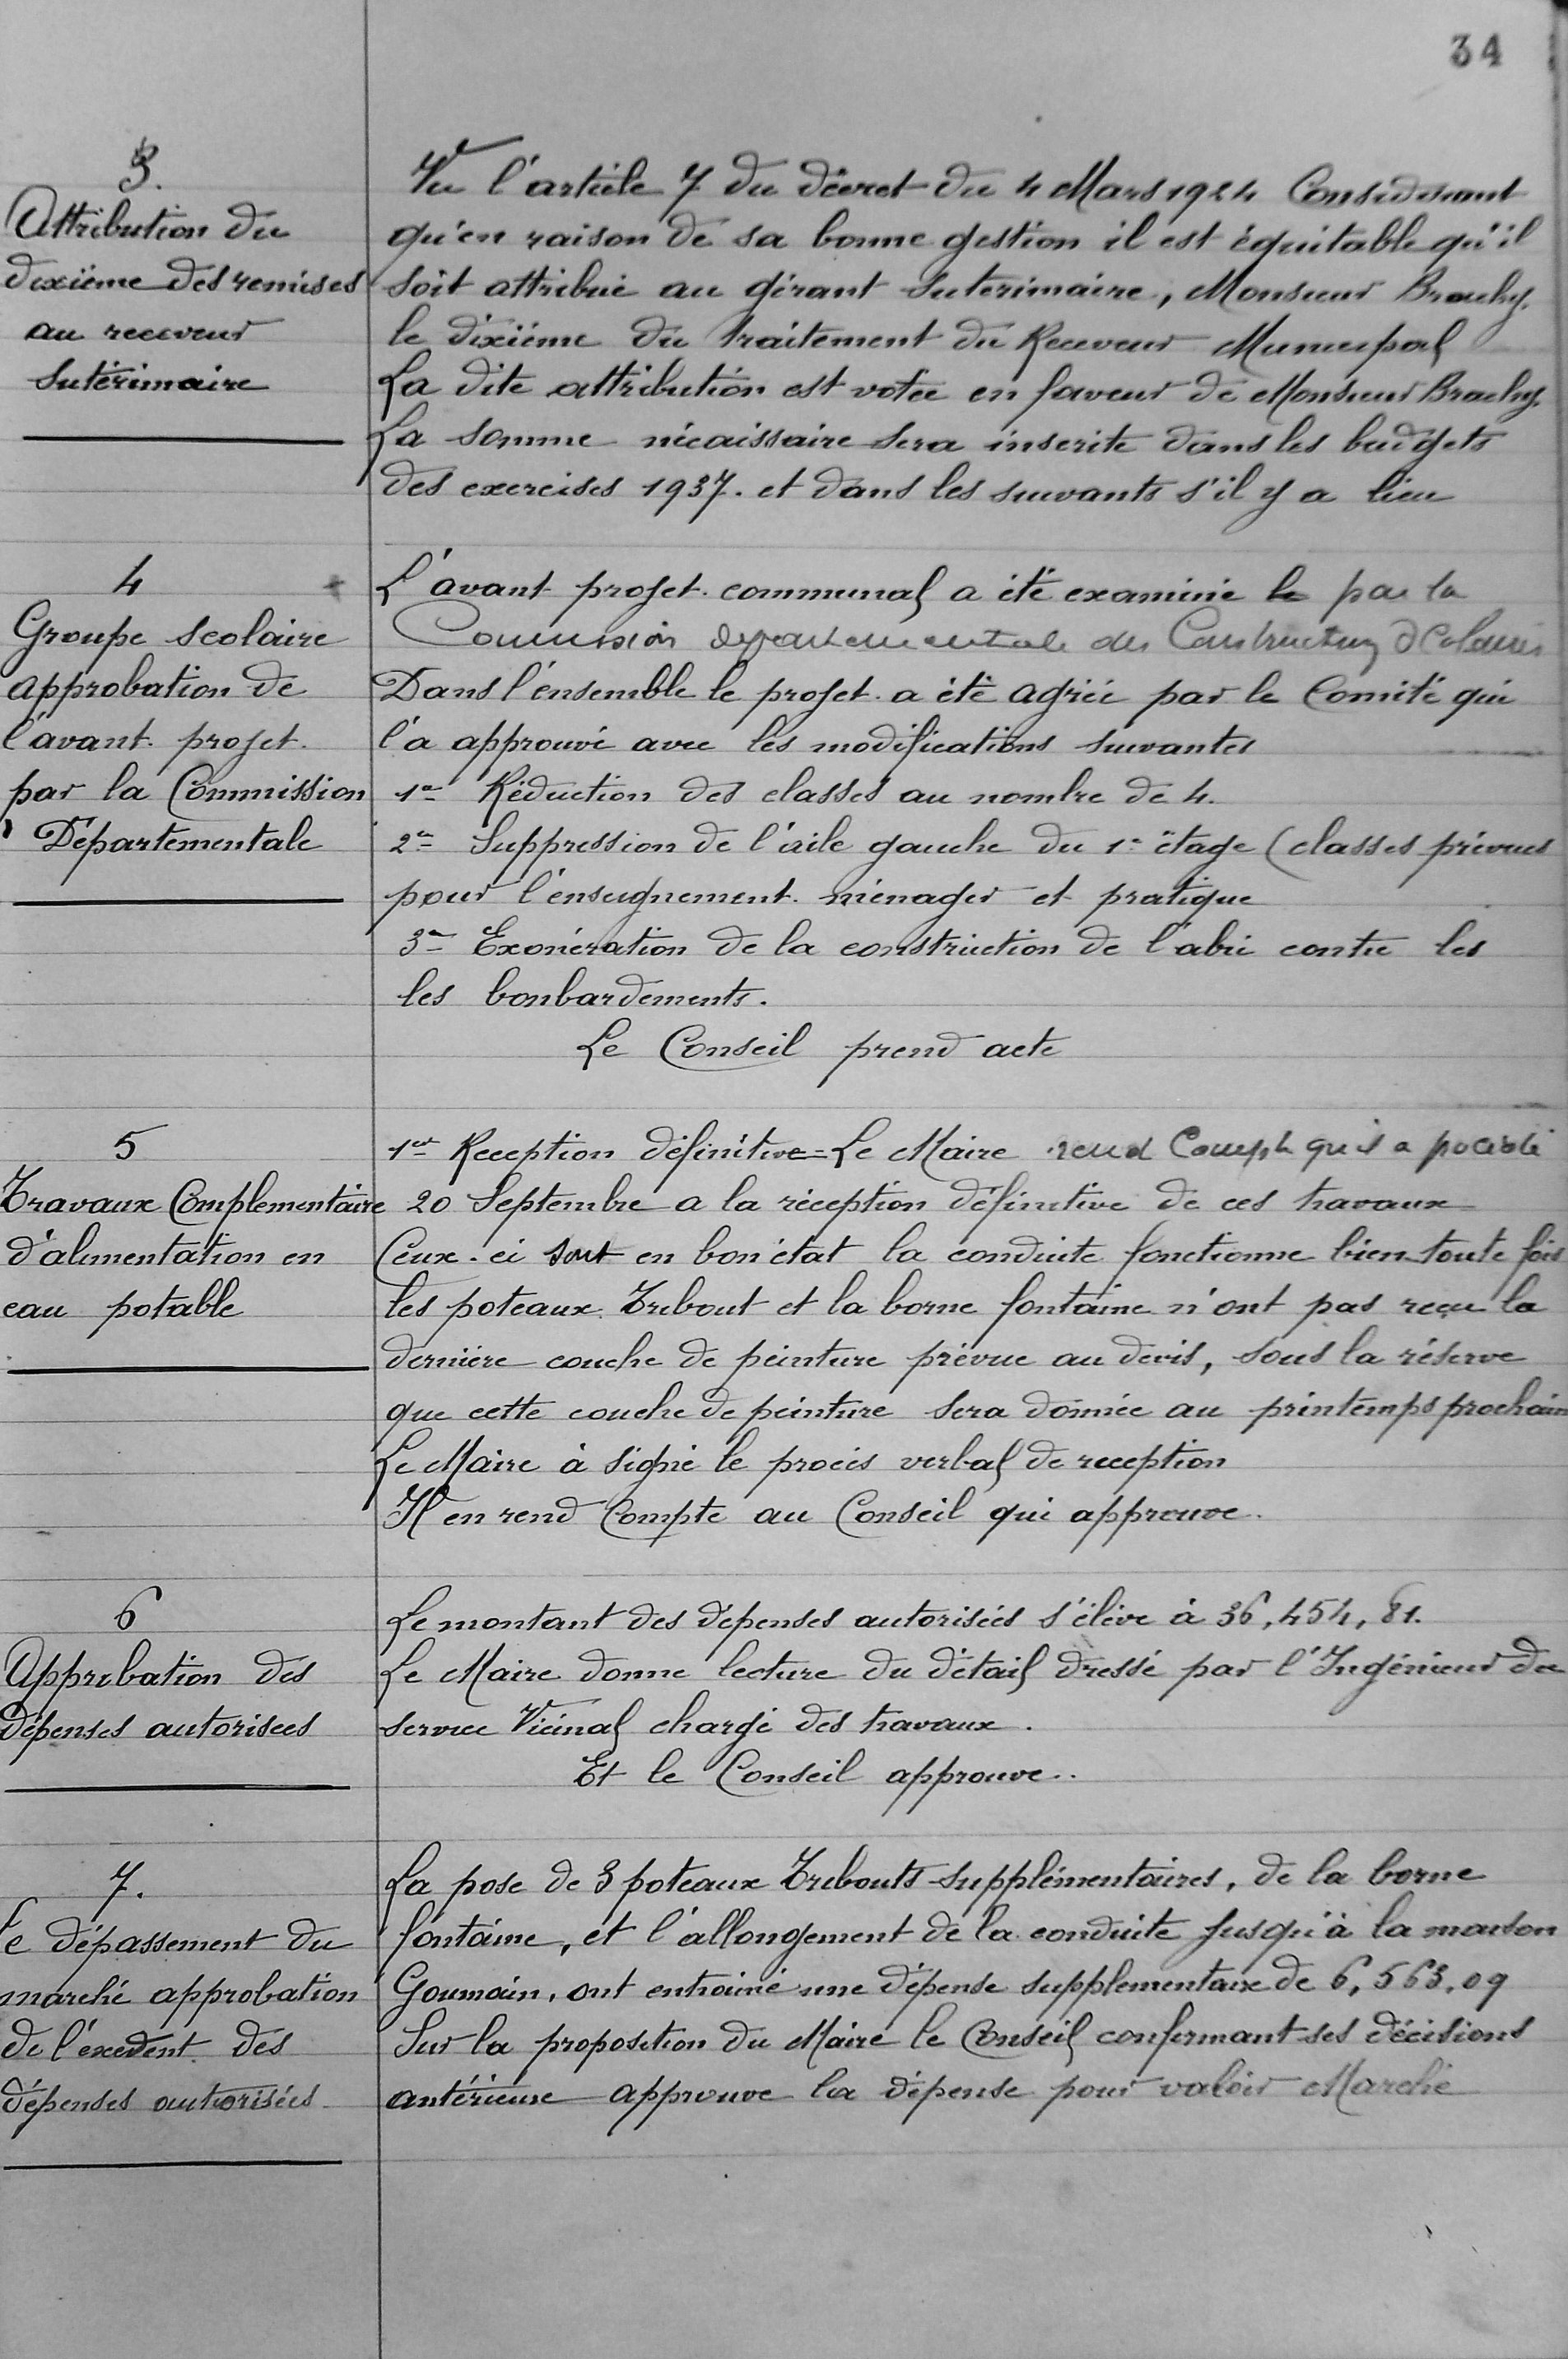 34
3.
Attribution du
dixième des remises
au receveur
Intérimaire
Vu l'article 7 du décret du 4 Mars 1924 Considérant
qu'en raison de sa bonne gestion il est équitable qu'il
soit attribué au gérant Interimaire, Monsieur Brachy.
le dixième du traitement du Receveur Municipal
La dite attribution est votée en faveur de Monsieur Brachy.
La somme nécaissaire sera inscrite dans les budgets
des exercises 1937. et dans les suivants s'il y a lieu
4
Groupe scolaire
approbation de
l'avant. projet.
par la Commission
Départementale
L'avant projet. communal a été examiné par la
Commission departementale des Constructions Scolaires
Dans l'énsemble le projet. a été agréé par le Comité qui
l'a approuvé avec les modifications suivantes
1º Réduction des classes au nombre de 4.
2º Suppression de l'aile gauche du 1º étage (classes prévues
pour l'énseignement. ménager et pratique
3º Exonération de la construction de l'abri contre les
les bonbardements.
Le Conseil prend acte
5
Travaux Complementaire
d'alimentation en
eau potable
1º Reception définitive = Le Maire rend Compte qu'il a procédé
20 Septembre a la réception définitive de ces travaux
Ceux-ci sont en bon état la conduite fonctionne bien toute fois
les poteaux Trebout et la borne fontaine n'ont pas reçu la
dernière couche de peinture prévue au devis, sous la réserve
que cette couche de peinture sera donnée au printemps prochain
Le Maire à signé le procès verbal de reception
Il en rend Compte au Conseil qui approuve.
6
Approbation des
dépenses autorisees
Le montant des dépenses autorisées s'élève à 36,454,81.
Le Maire donne lecture du détail dressé par l'Ingénieur du
service Vicinal chargé des travaux.
Et le Conseil approuve..
7.
Le dépassement du
marché approbation
de l'éxedent des
dépenses autorisées
La pose de 3 poteaux Trebouts supplémentaires, de la borne
fontaine, et l'allongement de la conduite jusqu'à la maison
Goumain, ont entrainé une dépense supplementaire de 6,563,09
Sur la proposition du Maire le Conseil confirmant ses décisions
antérieure approuve la dépense pour valoir Marché